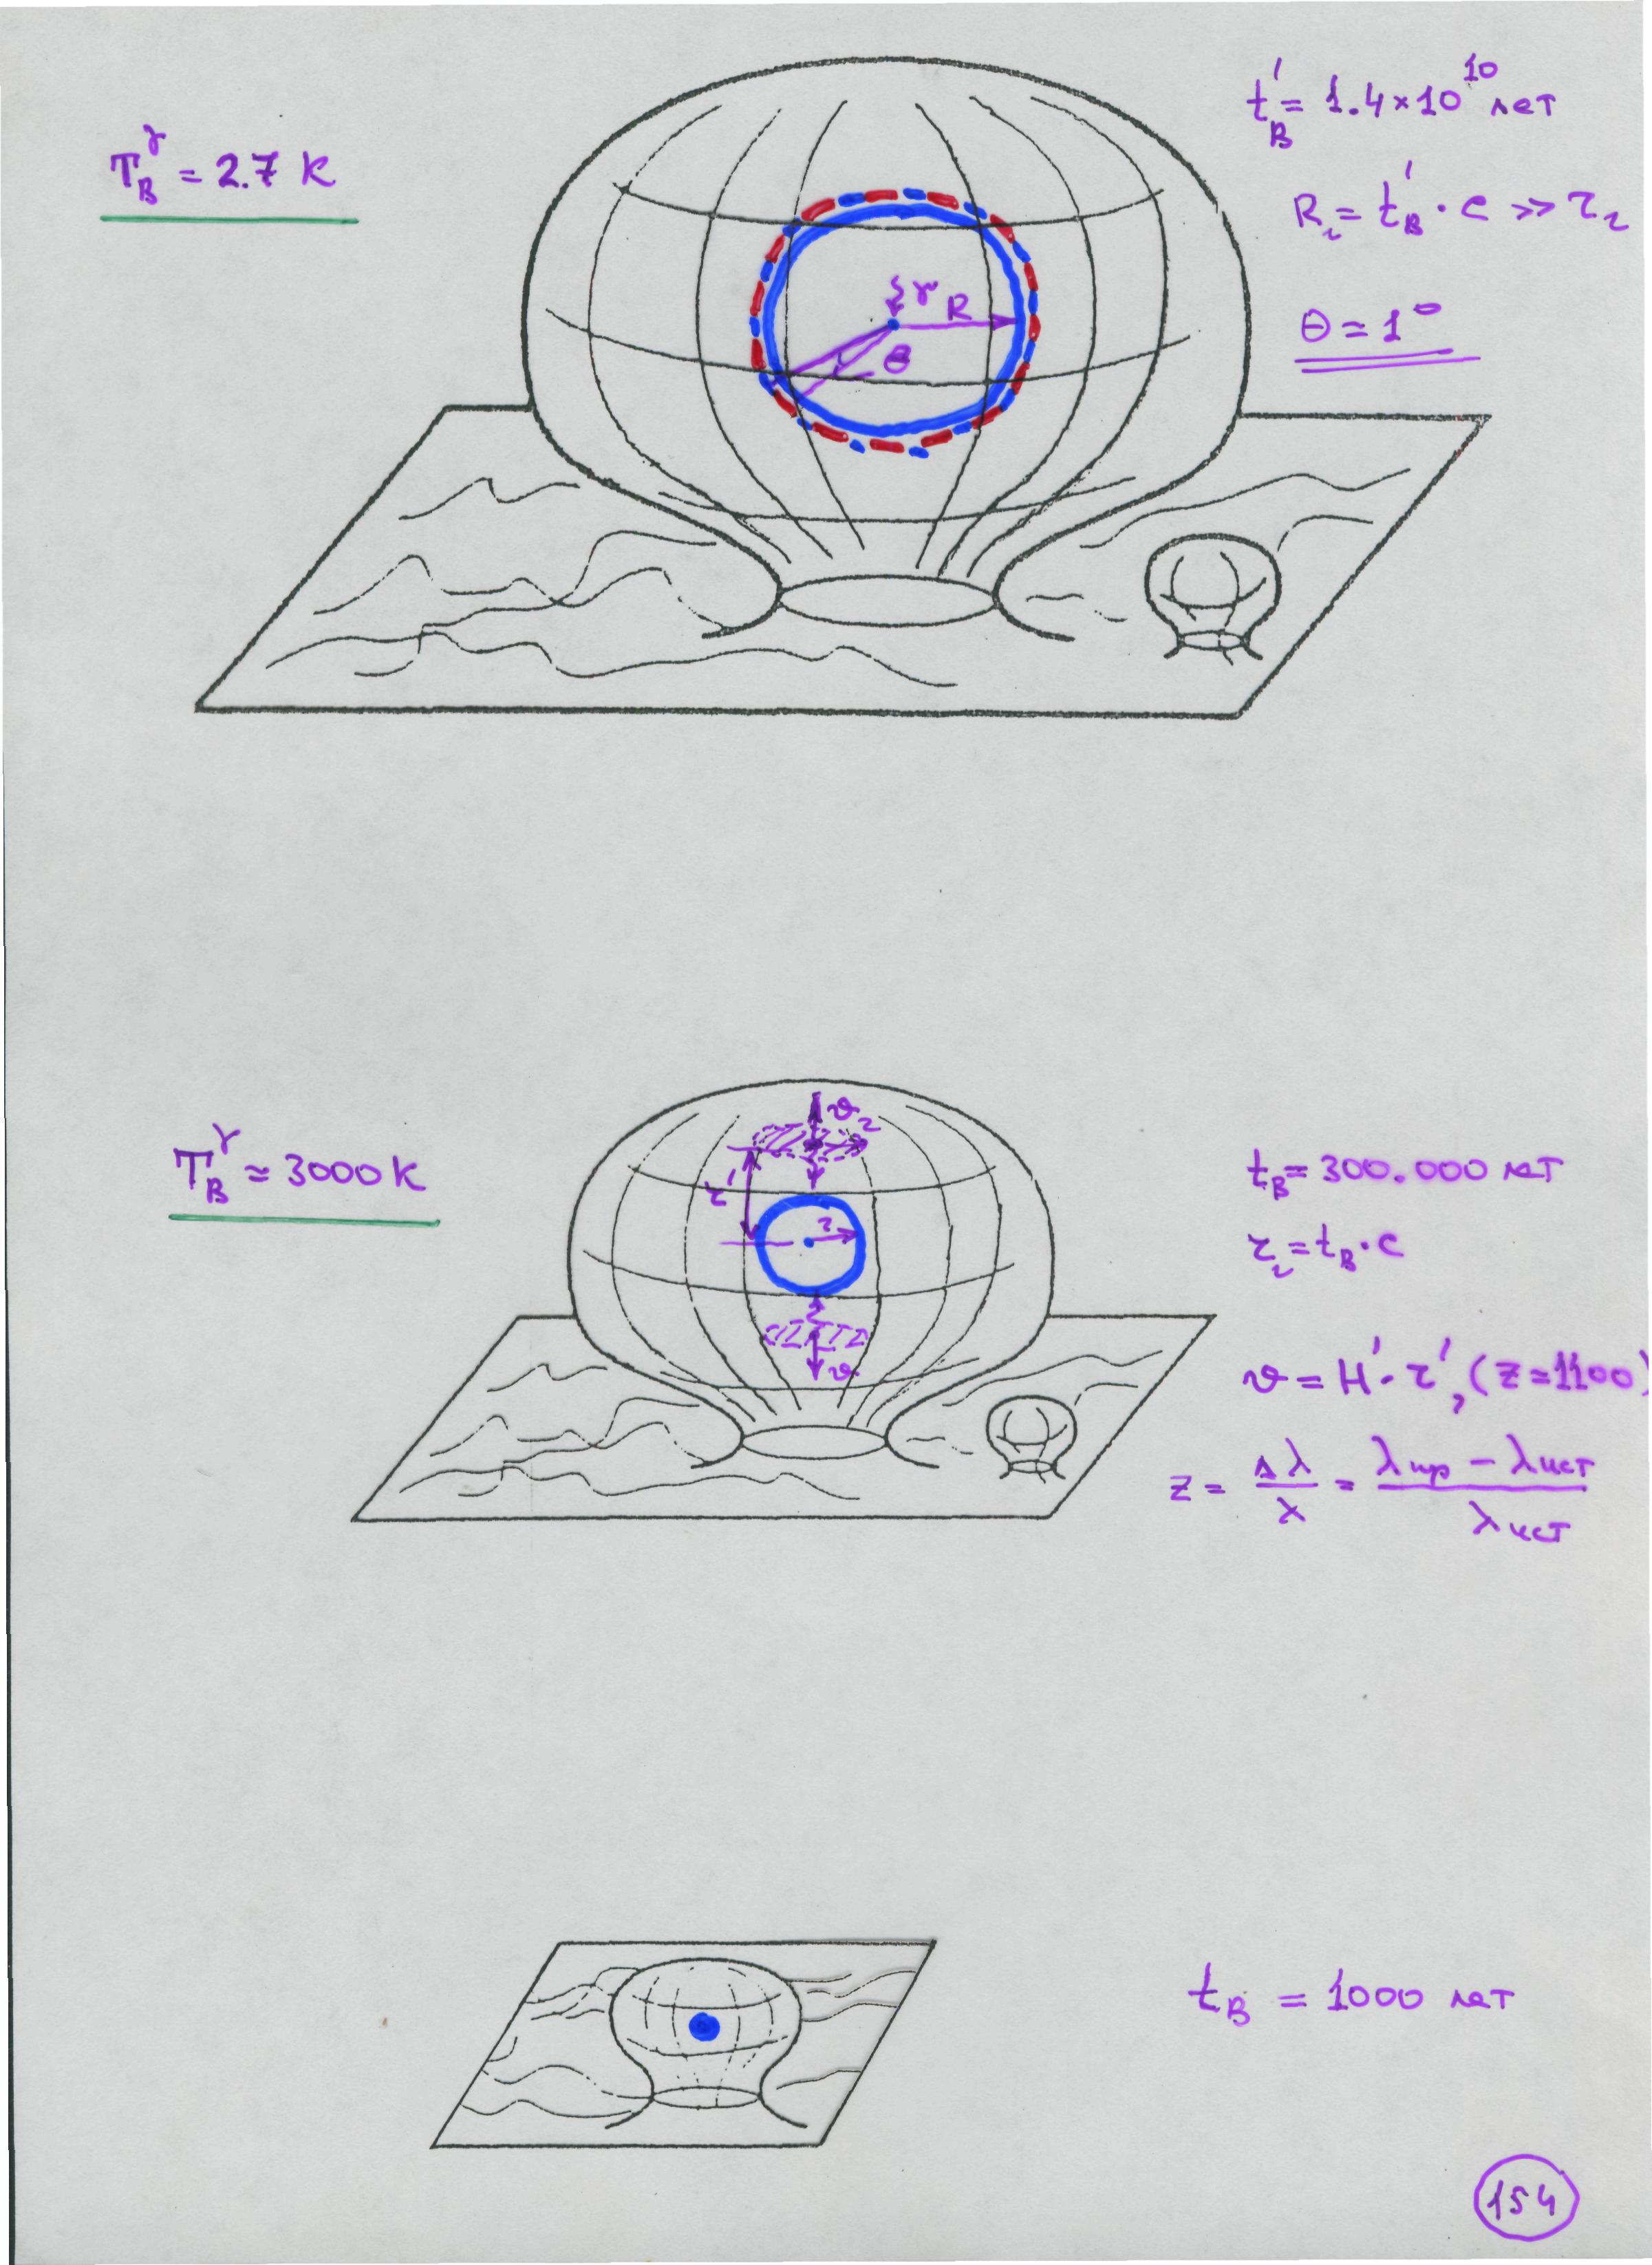 T_B^γ = 2.7 K
t'_B = 1.4×10^10 лет
R_г = t'_B · c ≫ τ_г
Θ = 1°
γ
R
Θ
T_B^γ ≈ 3000 K
ϑ
τ'
τ
ϑ
t_B = 300.000 лет
τ_г = t_B · c
ϑ = H' · τ', (z = 1100)
z = Δλ/λ = (λпр − λист)/λист
t_B = 1000 лет
154